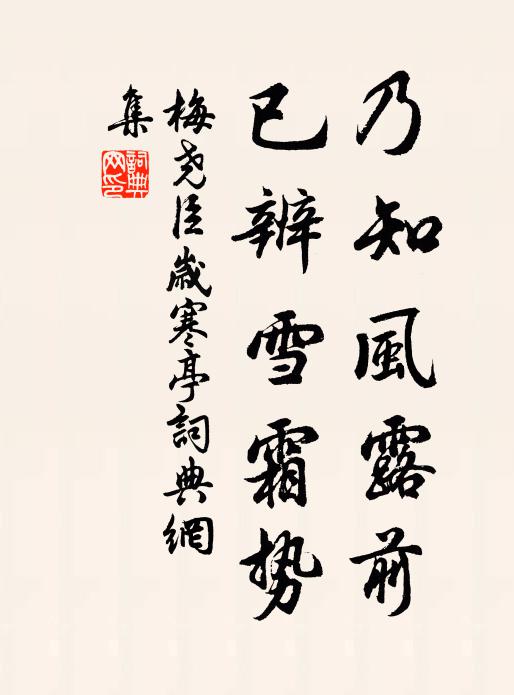 乃知風露前
已辨雪霜勢
梅堯臣歲寒亭詞典網
集
詞典網印